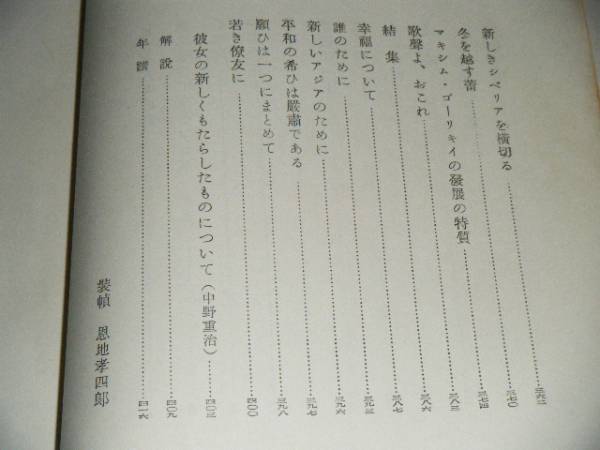 新しきシベリアを横切る……三六二
冬を越す蕾……三七〇
マキシム・ゴーリキイの發展の特質……三七四
歌聲よ、おこれ……三八三
結集……三八六
幸福について……三八七
誰のために……三九二
新しいアジアのために……三九六
平和の希ひは嚴肅である……三九七
願ひは一つにまとめて……三九八
若き僚友に……四〇〇
彼女の新しくもたらしたものについて(中野重治)……四〇三
解說……四〇九
年譜……四一六
裝幀 恩地孝四郎